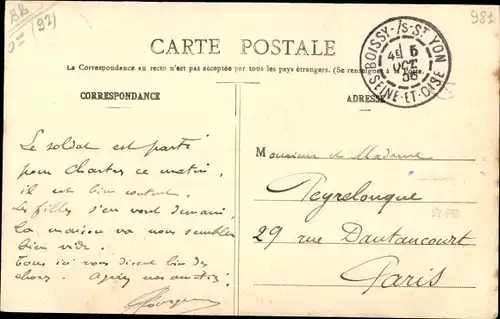 BB
(92)
981
CARTE POSTALE
La Correspondance au recto n'est pas acceptée par tous les pays étrangers. (Se renseigner à la Poste.)
BOISSY-/S-ST YON
4E 5
OCT
SEINE-ET-OISE
CORRESPONDANCE
ADRESSE
Le soldat est parti
pour Chartres ce matin,
il est bien content.
Les filles s'en vont demain,
La maison va nous sembler
bien vide.
Tous ici vous disent bien des
choses. Agréez nos amitiés
Monsieur et Madame
Peyrelongue
29 rue Dautancourt
Paris